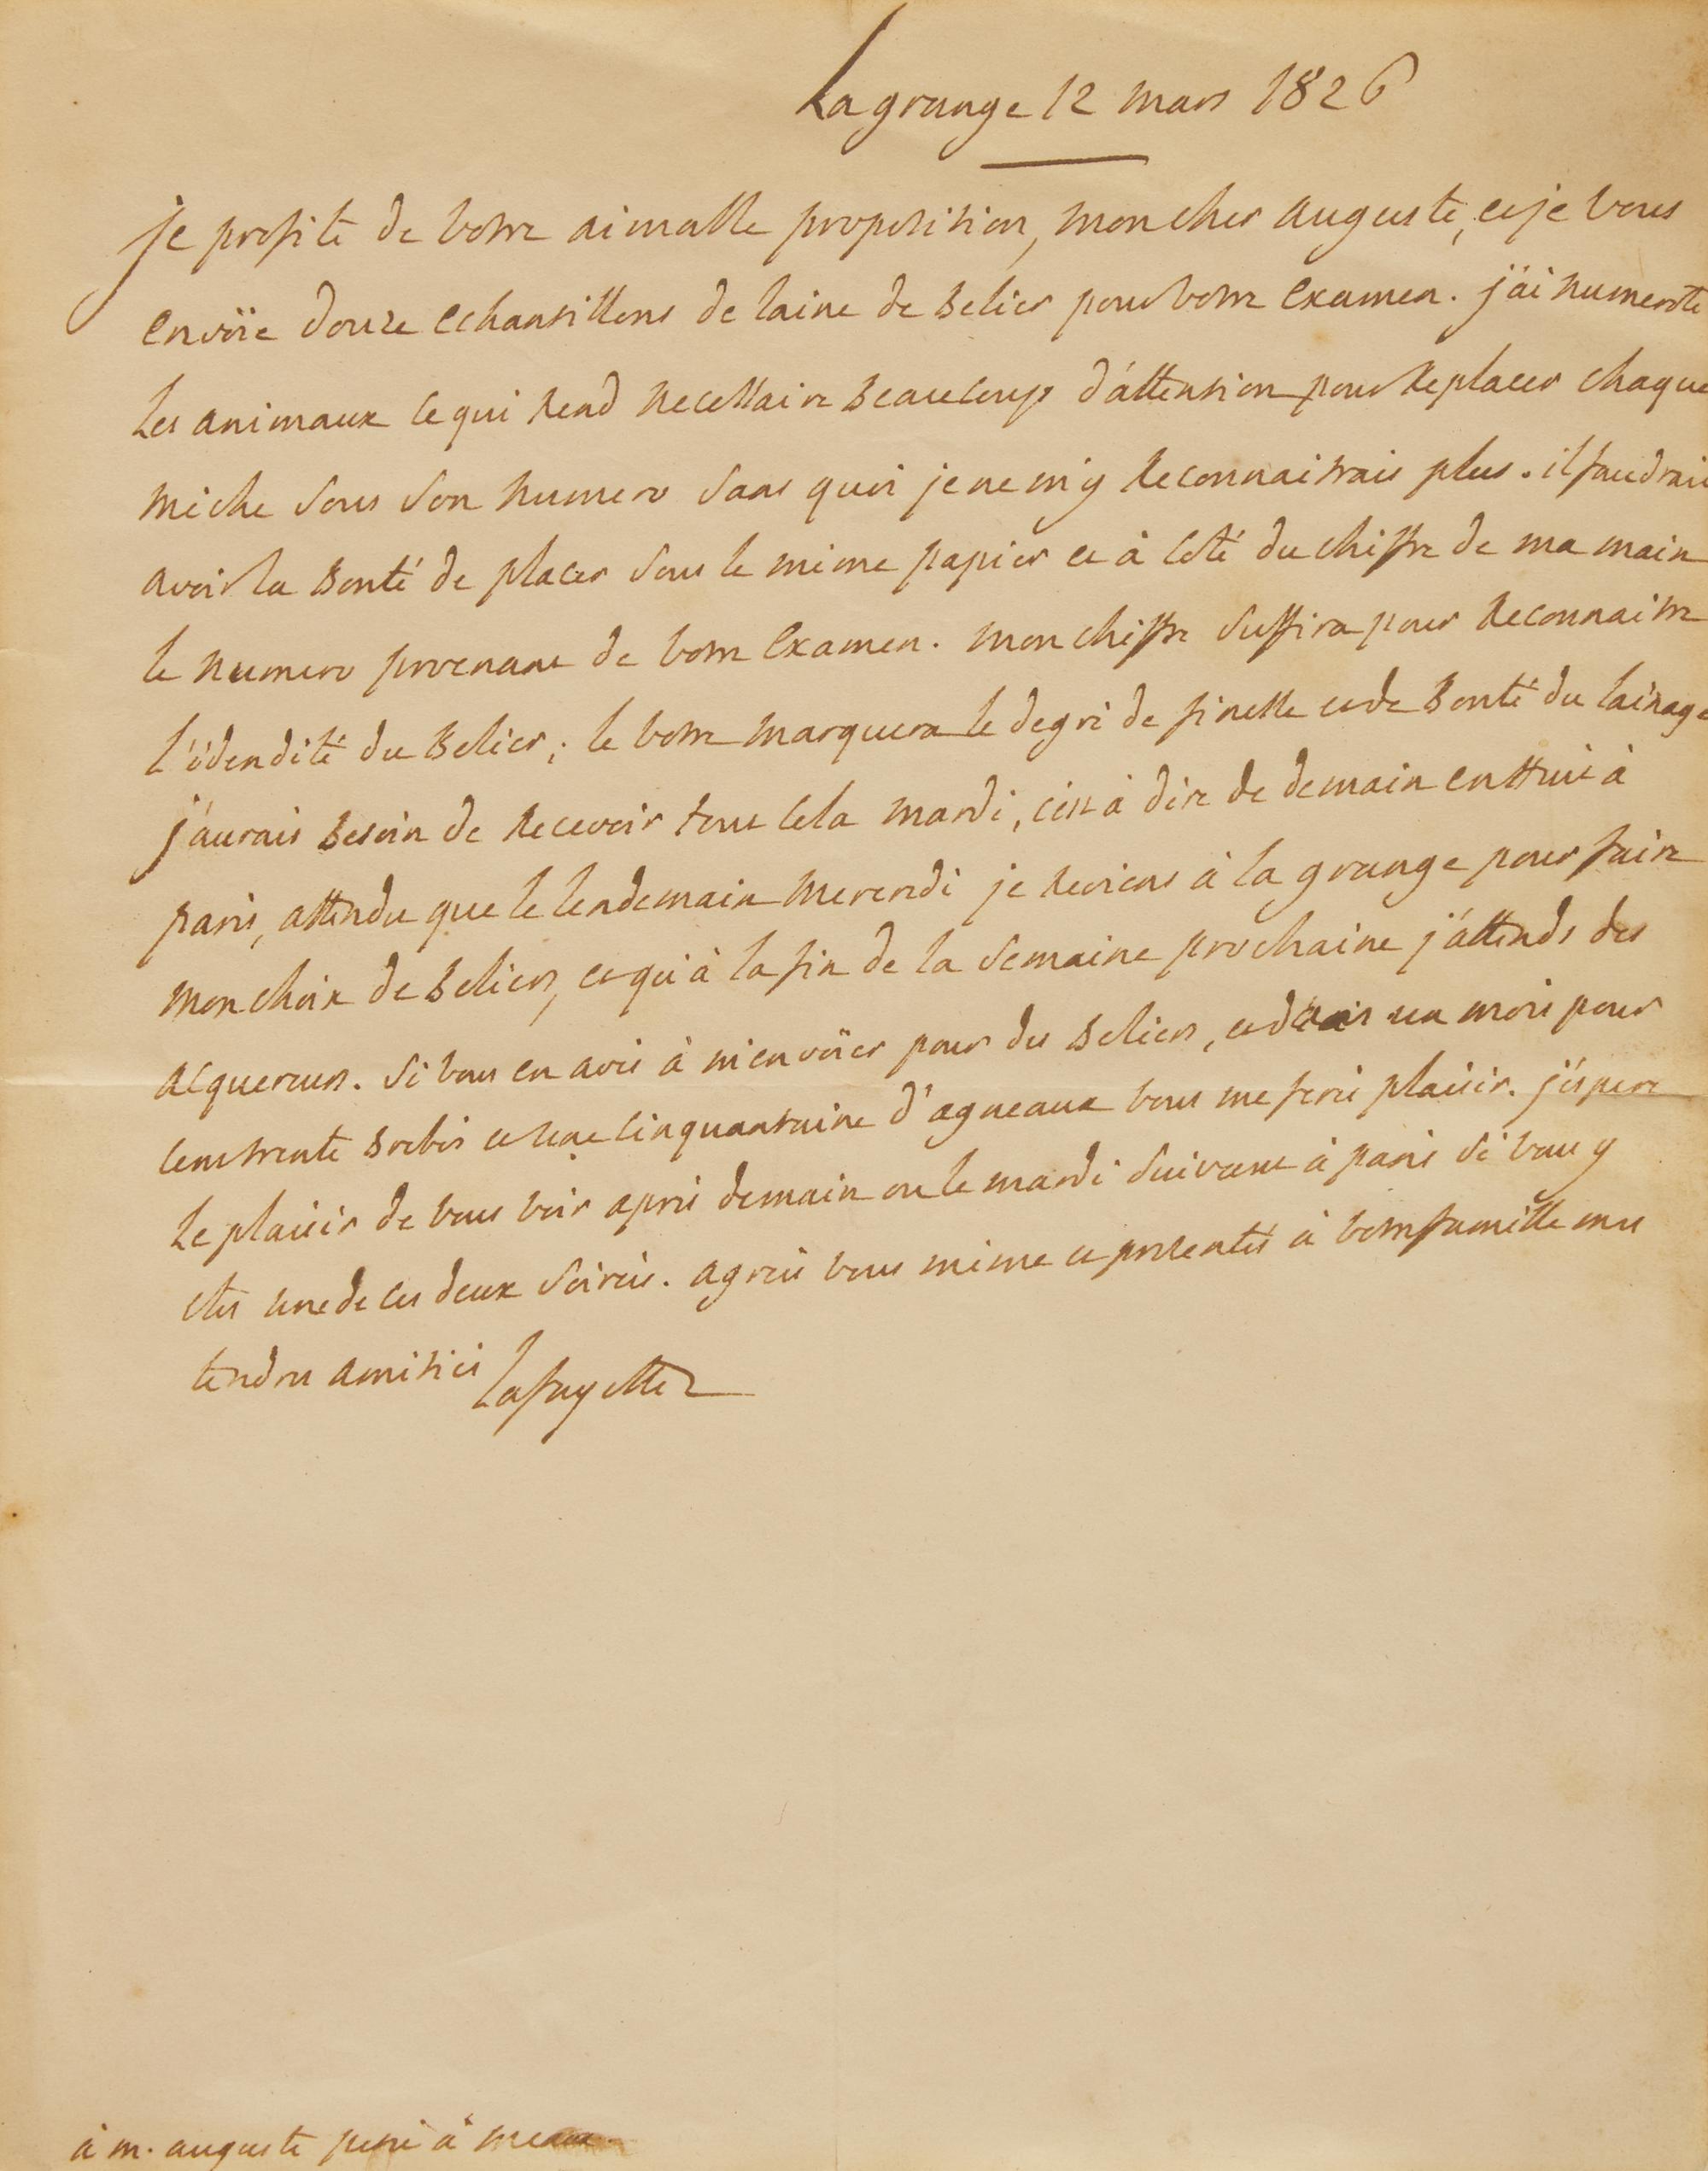 Lagrange 12 mars 1826
je profite de votre aimable proposition, mon cher auguste, et je vous
envoïe douze echantillons de laine de belier pour votre examen. j'ai numeroté
les animaux ce qui rend necessaire beaucoup d'attention pour replacer chaque
meche sous son numero sans quoi je ne m'y reconnaitrais plus. il faudrait
avoir la bonté de placer sous le meme papier et à coté du chiffre de ma main
le numero provenant de votre examen. mon chiffre suffira pour reconnaitre
l'idendité du belier; le votre marquera le degré de finesse et de bonté du lainage
j'aurais besoin de recevoir tout cela mardi, c'est à dire de demain en huit à
paris, attendu que le lendemain mercredi je reviens à la grange pour faire
mon choix de beliers, et qu'à la fin de la semaine prochaine j'attends des
acquereurs. si vous en avés à m'envoïer pour des beliers, et dans un mois pour
cent trente brebis et une cinquantaine d'agneaux vous me ferés plaisir. j'espere
le plaisir de vous voir après demain ou le mardi suivant à paris si vous y
etes une de ces deux soirées. agréés vous meme et presentés à votre famille mes
tendres amitiés Lafayette
à m. auguste petit à meaux